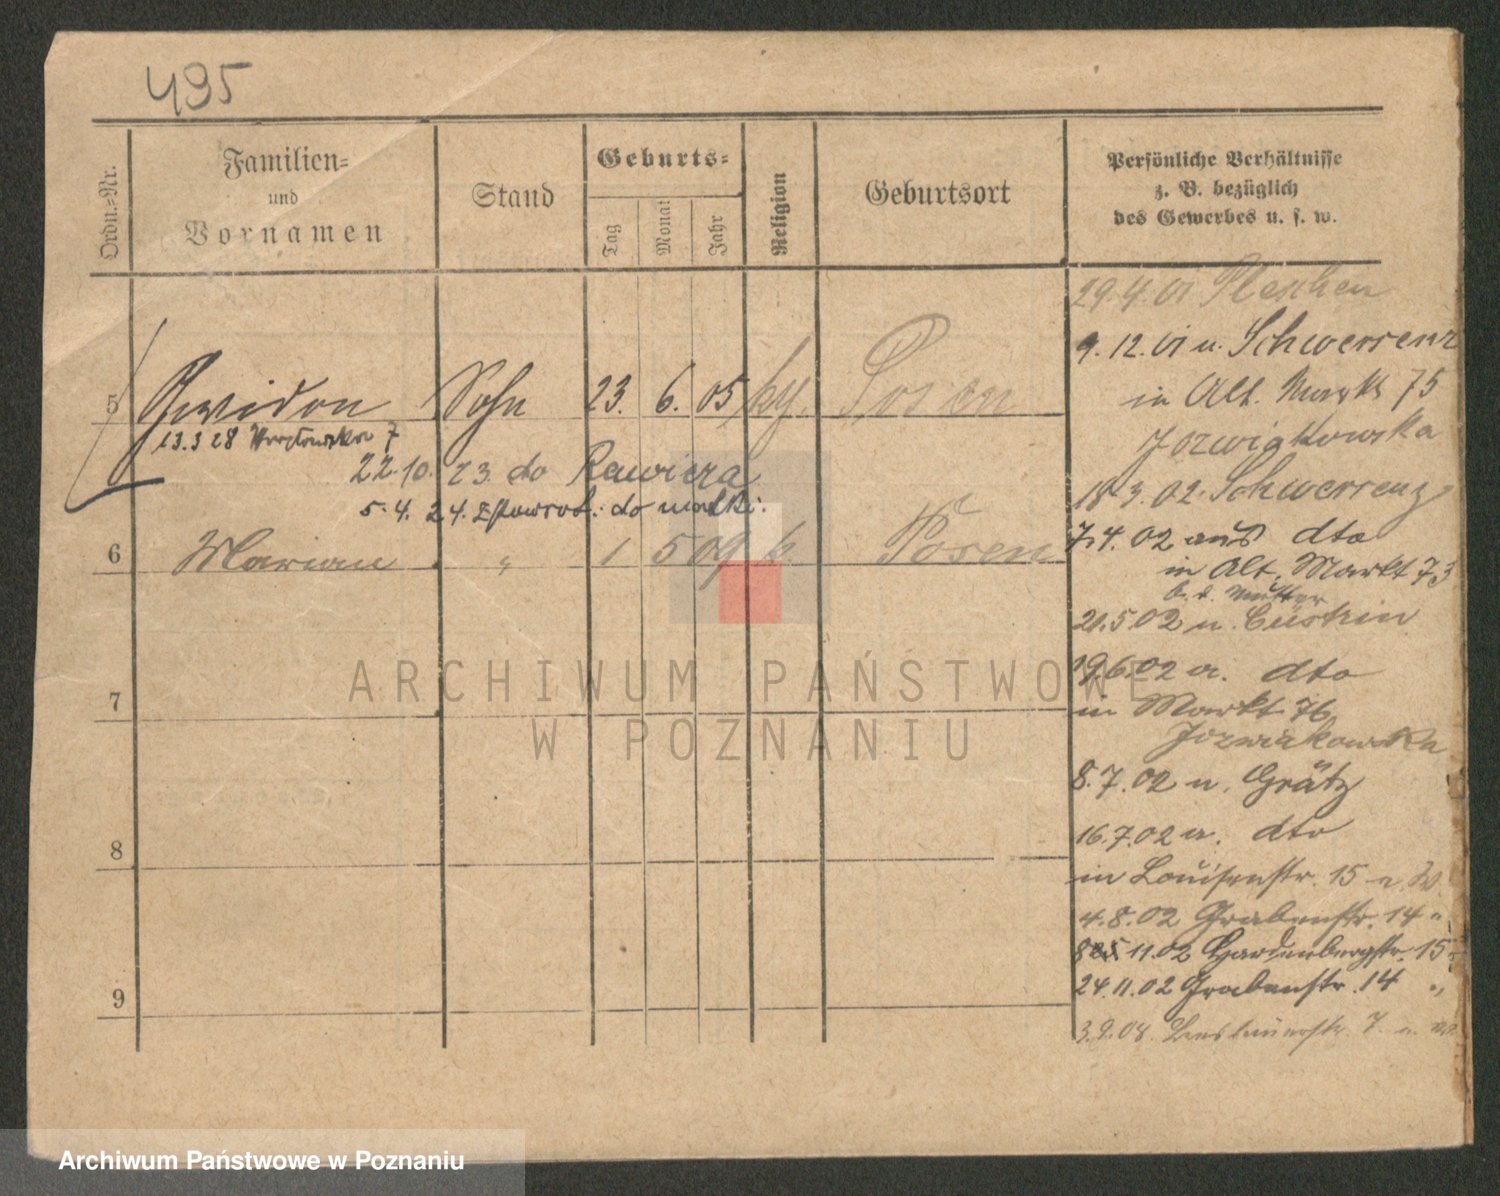 495
Ordn.-Nr.
Familien-
und
Vornamen
Stand
Geburts-
Tag
Monat
Jahr
Religion
Geburtsort
Persönliche Verhältnisse
z. B. bezüglich
des Gewerbes u. s. w.
5
Sohn 23. 6. 05 Posen
13.3 28 7
22.10. 23. do Rawicza
5. 4. 24. z powrot. do matki.
6 Marian " 1 5 09 k. Posen
7
8
9
29.4.01 Pleschen
9.12.01 n. Schwersenz
in Alt. Markt 75
Jozwiakowska
18.3.02. Schwersenz
7.4.02 aus dto
in Alt. Markt 73
b. d. Mutter
21.5.02 n. Cüstrin
19.6.02 a. dto
in Markt 76
Jozwiakowska
8.7.02 n. Grätz
16.7.02 a. dto
in Louisenstr. 15
4.8.02 Grabenstr. 14 "
11.02 Hardenbergstr. 15
24.11.02 Grabenstr. 14 "
ARCHIWUM PAŃSTWOWE
W POZNANIU
Archiwum Państwowe w Poznaniu